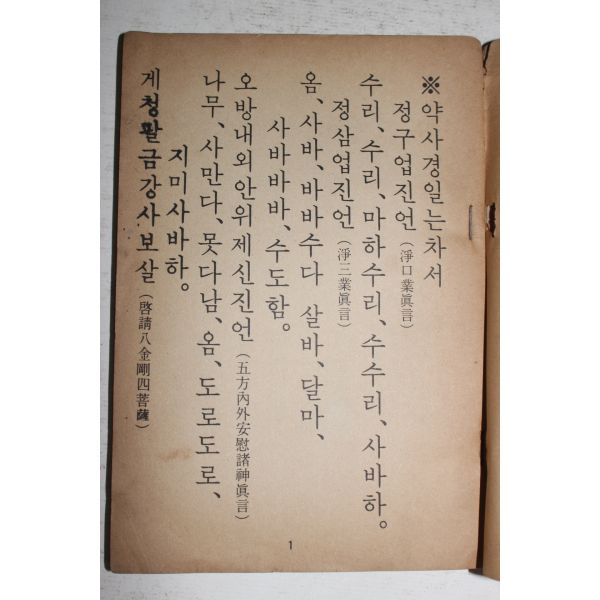 ※ 약사경일는차서
정구업진언 (淨口業眞言)
수리、수리、마하수리、수수리、사바하。
정삼업진언 (淨三業眞言)
옴、사바、바바수다 살바、달마、
사바바바、수도함。
오방내외안위제신진언 (五方內外安慰諸神眞言)
나무、사만다、못다남、옴、도로도로、
지미사바하。
게청팔금강사보살 (啓請八金剛四菩薩)
1